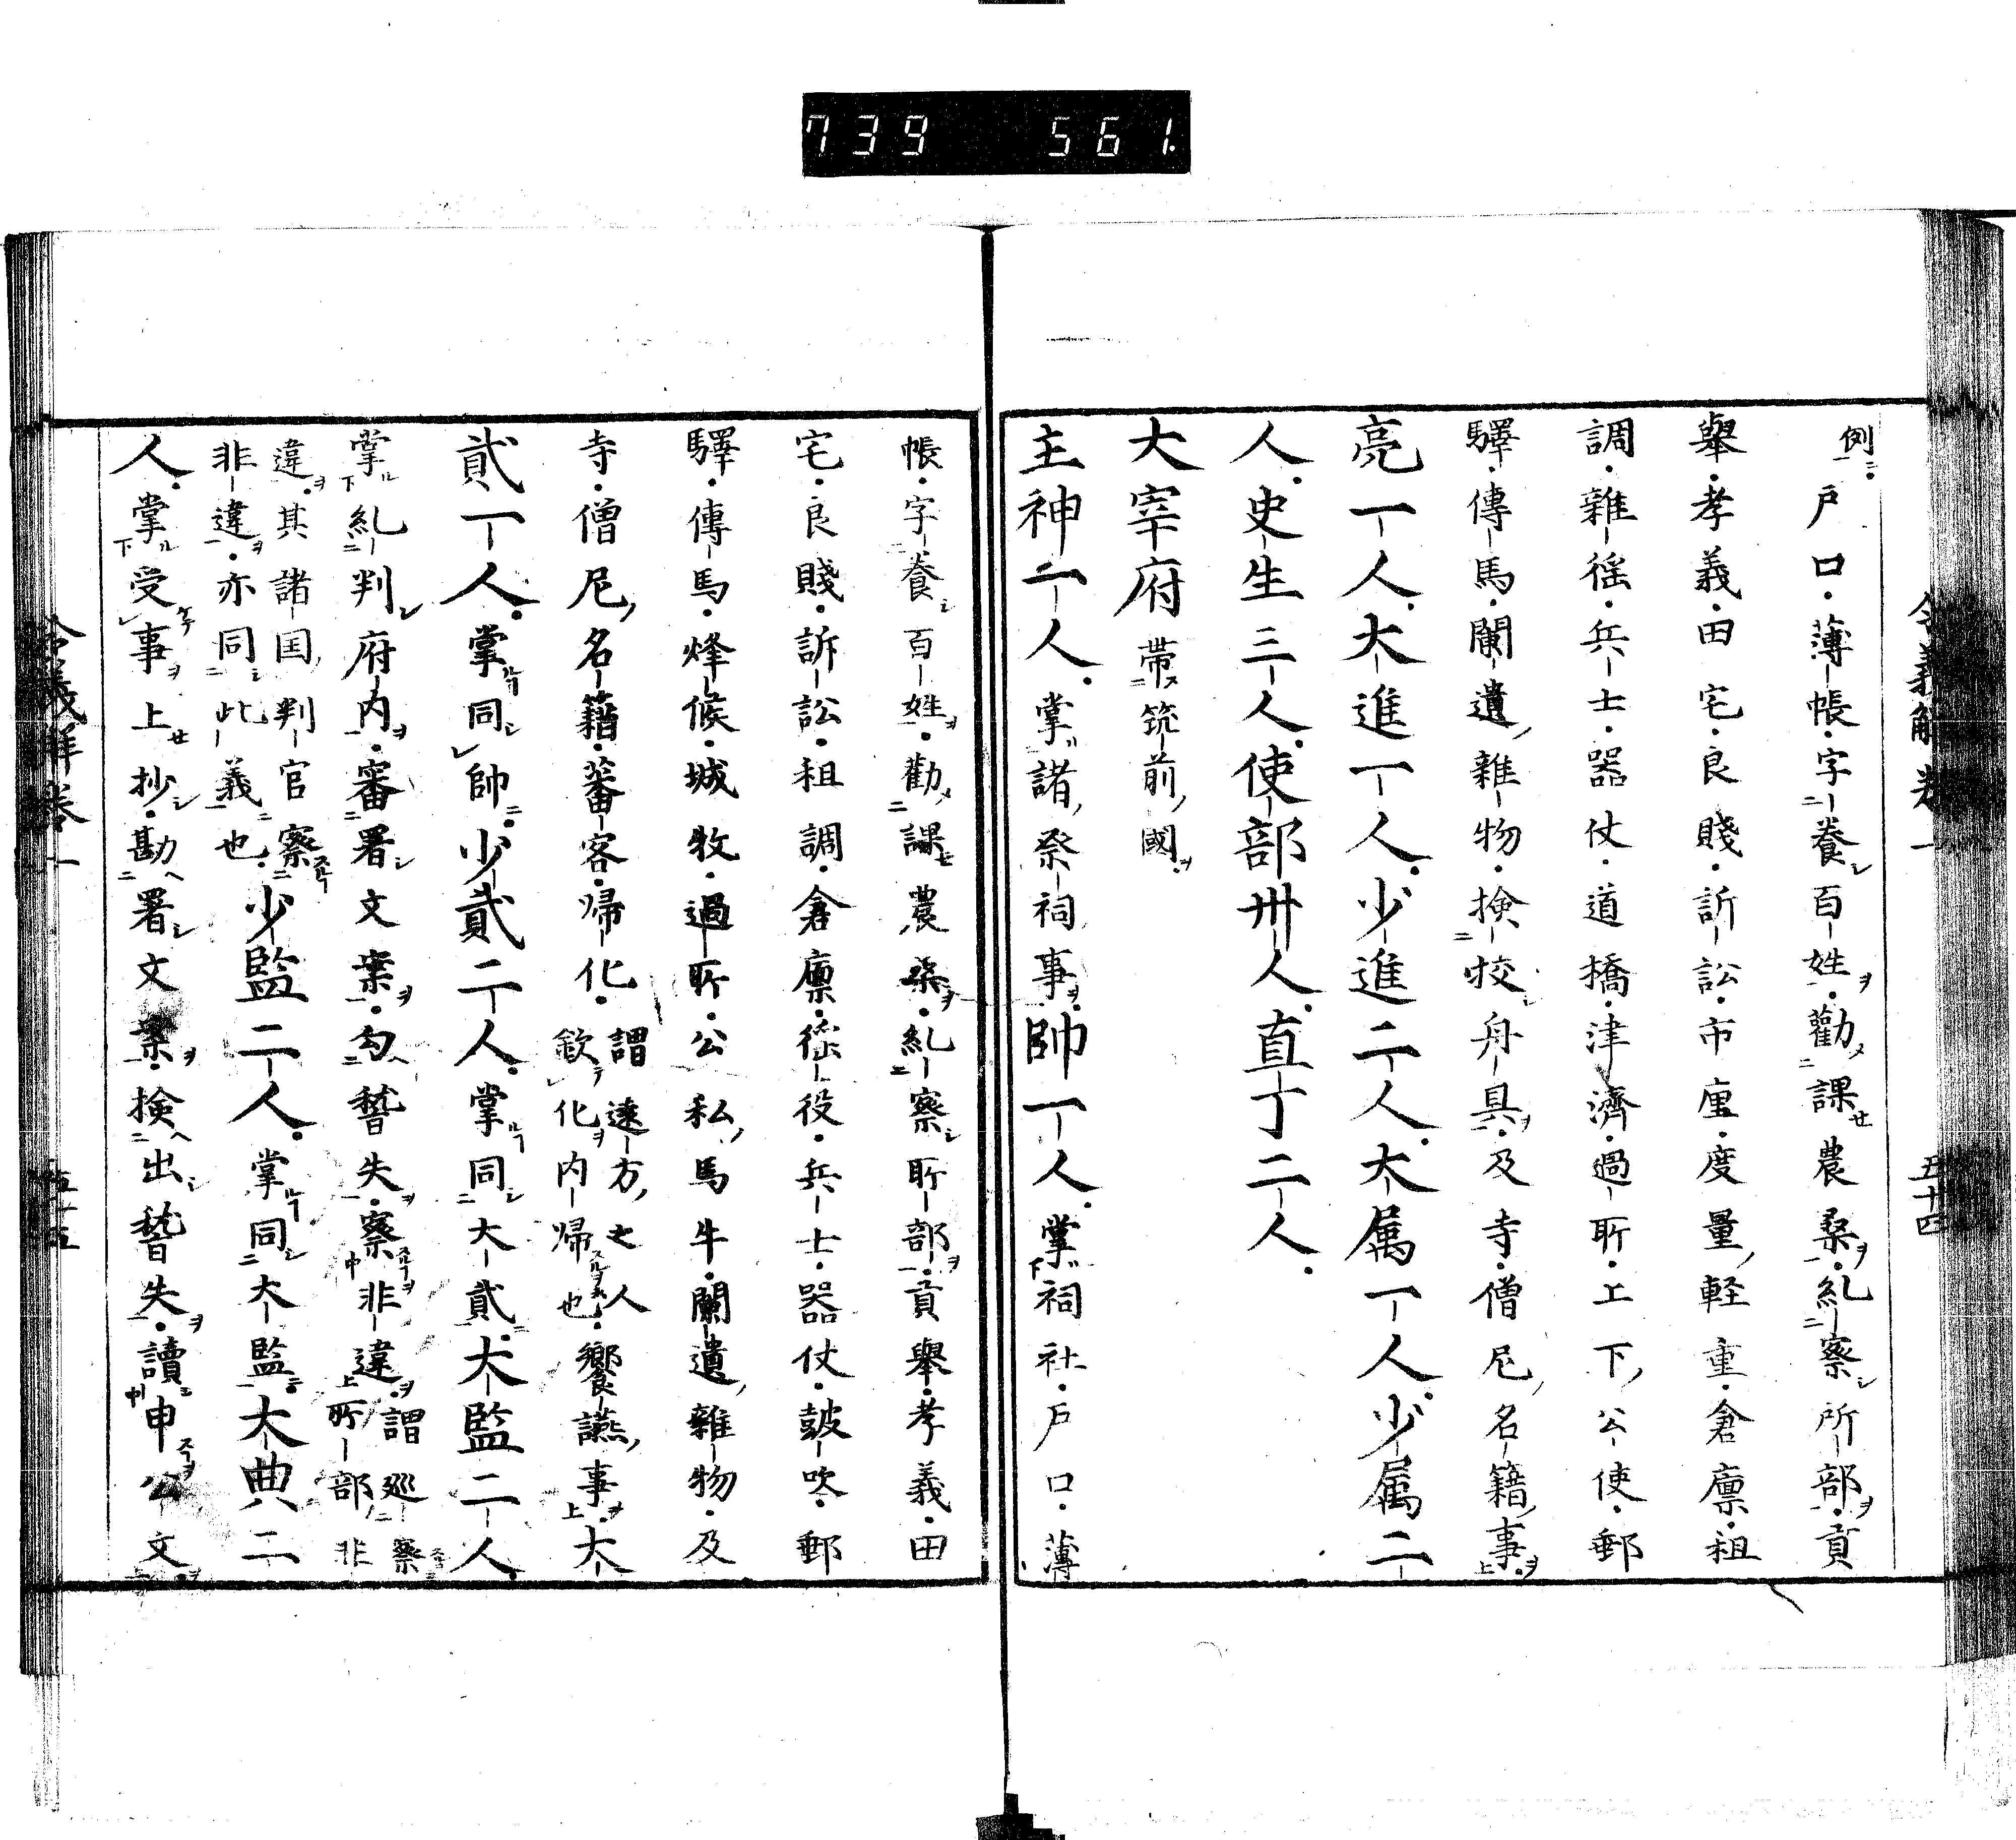 739 561.
令義解卷一 五十四
例
戸口薄帳字養百姓勸課農桑糺察所部貢
舉孝義田宅良賤訴訟市廛度量軽重倉廪租
調雜徭兵士器仗道橋津濟過所上下公使郵
驛傳馬闌遺雜物檢挍舟具及寺僧尼名籍事
亮一人大進一人少進二人大属一人少属二
人史生三人使部卅人直丁二人
大宰府帶筑前國
主神一人掌諸祭祠事帥一人掌祠社戸口薄
帳字養百姓勸課農桑糺察所部貢舉孝義田
宅良賤訴訟租調倉廪徭役兵士器仗鼓吹郵
驛傳馬烽候城牧過所公私馬牛闌遺雜物及
寺僧尼名籍蕃客帰化
謂遠方之人
欽化内帰也
饗讌事大
貳一人掌同帥少貳二人掌同大貳大監二人
掌糺判府内審署文案勾稽失察非違
謂巡察
所部非
違其諸国判官察
非違亦同此義也
少監二人掌同大監大典二
人掌受事上抄勘署文案檢出稽失讀申公文
令義解卷一 五十五